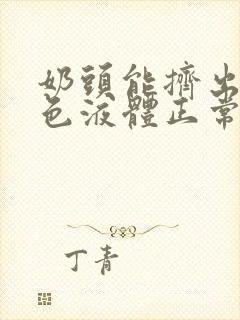 奶頭能擠出
色液體正常
丁青